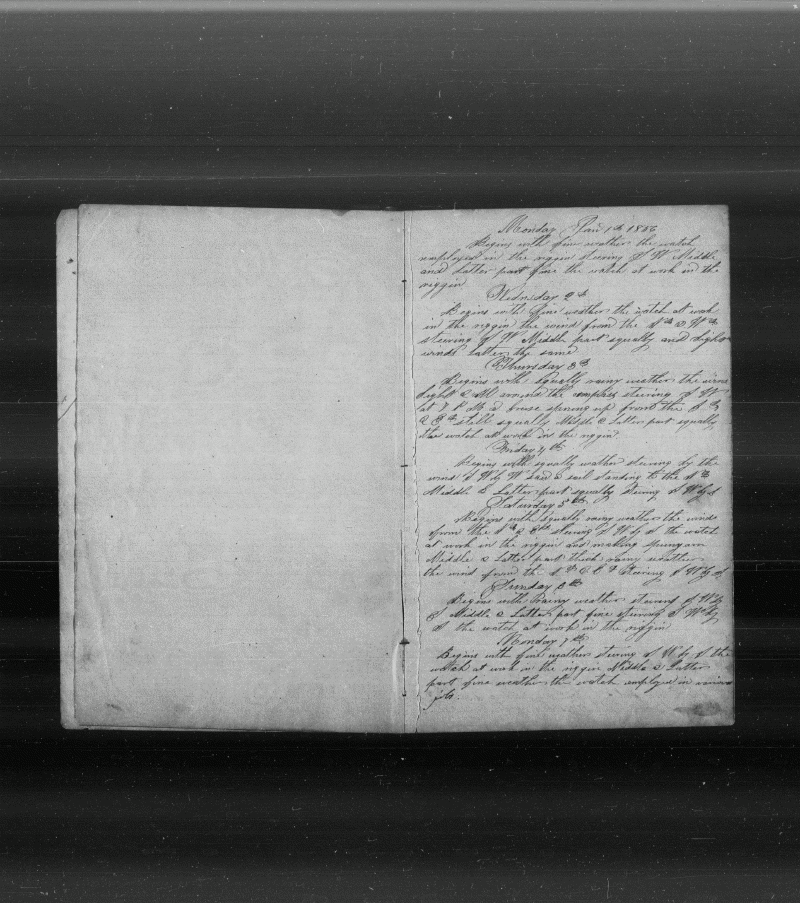 Monday Jan 1st 1856
Begins with fine wather the watch
employed in the riggin steering S W Middle
and Latter part fine the watch at work in the
riggin
Wednesday 2nd
Begins with fine weather the watch at work
in the riggin the wind from the
steering S W Middle part squally and light
winds latter the same
Thursday 3rd
Begins with Squally rainy weather the wind
light & All around the compass steering S W
at 7 P M a brese spring up from the S
& E still squally Middle & Latter part squally
the watch at work in the riggin
Friday 4th
Begins with squally wather steering by the
wind S W by W Said a sail standing to the
Middle & Latter part squally steering S W by S
Saturday 5th
Begins with Squally rainy weather the wind
from the S & E steering S W by S the watch
at work in the riggin and making spunyarn
Middle & Latter part thick rainy weather
the wind from the S & E steering S W by S
Sunday 6th
Begins with rainy weather steering S W by
S Middle & Latter part fine steering S W by
S the watch at work in the riggin
Monday 7th
Begins with fine weather steering S W by S the
watch at work in the riggin Middle & Latter
part fine weather the watch employed in various
jobs.